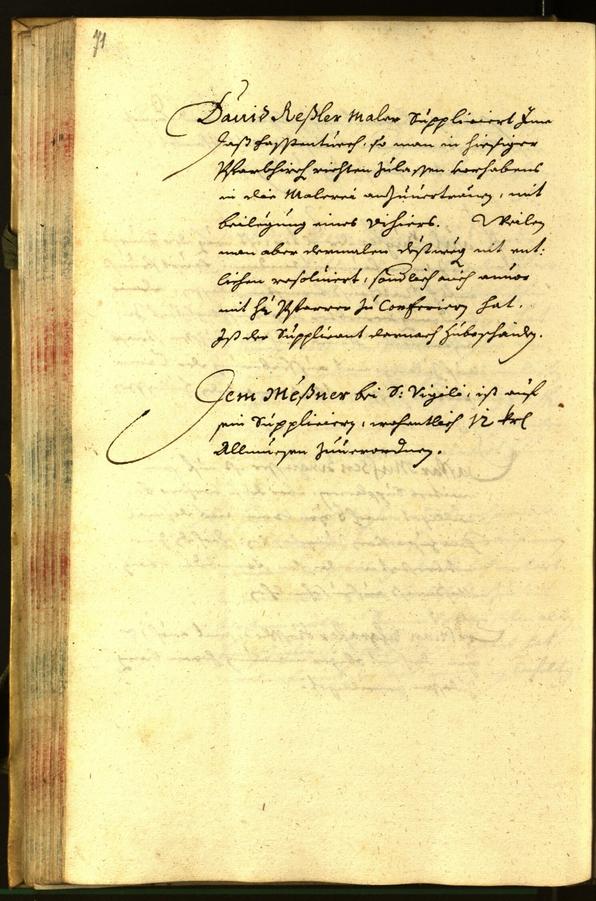 71
Dauid Reßler Maler Suppliciert Ime
daß so man in hiesiger
Pfarrkhirch richten zulassen vorhabens
in die Malerei anzuuertrauen, mit
beilegung eines Visiers. Weilen
man aber dermalen destweg nit ent:
lichen resoluiert, sondlich auch anuor
mit hℓ Pfarrer zu Conferiern hat.
Ist der Supplicant dernach zubeschaiden.
Dem Meßner bei S: Vigili, ist auf
sein Suppliciern, wochentlich 12 krℓ
Allmuesen zuuerordnen.